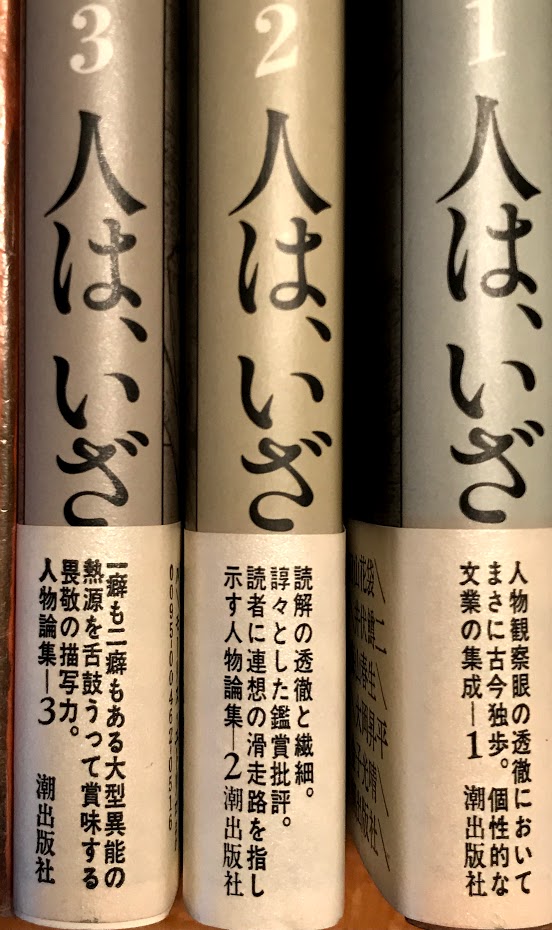 1
人は、いざ
人物観察眼の透徹において
まさに古今独歩。個性的な
文業の集成—1
潮出版社
2
人は、いざ
読解の透徹と繊細。
諄々とした鑑賞批評。
読者に連想の滑走路を指し
示す人物論集—2
潮出版社
3
人は、いざ
一癖も二癖もある大型異能の
熱源を舌鼓うって賞味する
畏敬の描写力。
人物論集—3
潮出版社
0095-00462-0516